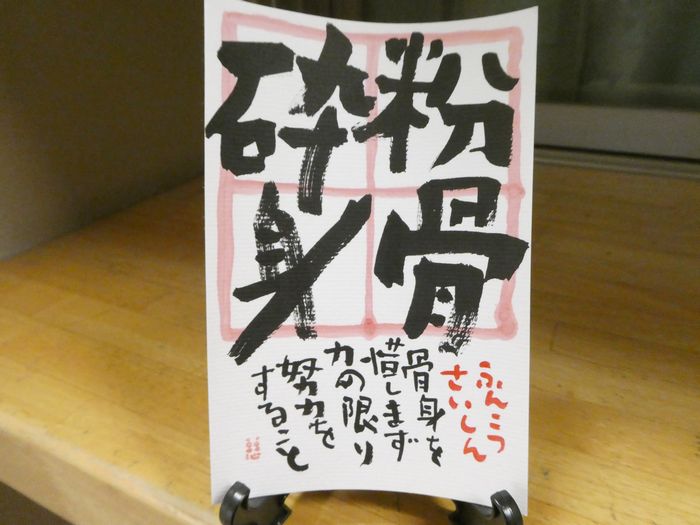 粉骨
砕身
ふんこつ
さいしん
骨身を
惜しまず
力の限り
努力を
すること